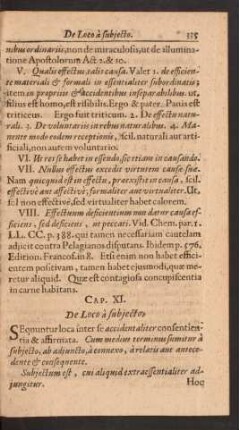 De Loco à subjecto. 115
nibus ordinariis, non de miraculosis, ut de illumina-
tione Apostolorum Act 2. & 10.
V. Qualis effectus talis causa. Valet 1. de efficien-
te materiali & formali in essentialiter subordinatis;
item in propriis & accidentibus inseparabilibus. ut,
filius est homo, est risibilis. Ergo & pater. Panis est
triticeus. Ergo fuit triticum. 2. De effectu natu-
rali. 3. De voluntariis in rebus naturalibus. 4. Ma-
nente modo eodem receptionis, scil. naturali aut arti-
ficiali, non autem voluntario.
VI. Ut res se habet in essendo, se etiam in causando.
VII. Nullus effectus excedit virtutem causæ suæ.
Nam quicquid est in effectu, præexistit in causa, scil.
effectivè aut affectivè; formaliter aut virtualiter. Ut,
sol non effectivè, sed virtualiter habet calorem.
VIII. Effectuum deficientium non datur causa ef-
ficiens, sed deficiens, ut peccati. Vid. Chem. par. 1.
LL. CC. p. 388. qui tamen necessariam cautelam
adjicit contra Pelagianos disputans. Ibidem p. 576.
Edition. Francof. in 8. Etsi enim non habet effici-
entem positivam, tamen habet ejusmodi, quæ me-
retur aliquid. Quæ est contagiosa concupiscentia
in carne habitans.
CAP. XI.
De Loco à subjecto
SEqunntur loca inter se accidentaliter consentien-
tia & affirmata. Cum medius terminus sumitur à
subjecto, ab adjuncto, à connexo, à relatis aut antece-
dente & consequente.
Subjectum est, cui aliquid extraessentialiter ad-
jungitur. Hoc